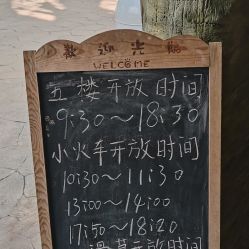 歡迎光臨
WELCOME
五楼开放时间
9:30～18:30
小火车开放时间
10:30～11:30
13:00～14:00
17:50～18:20
滑草开放时间